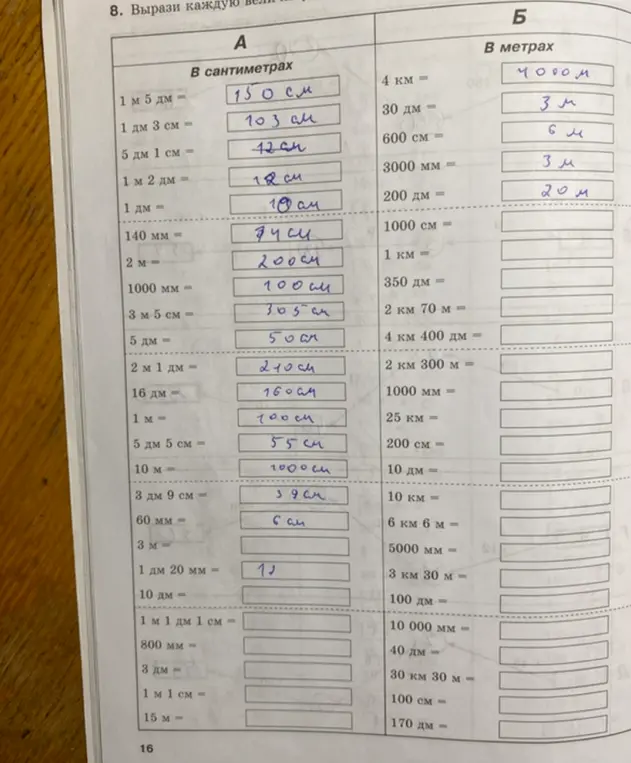 8. Вырази каждую
А
В сантиметрах
1 м 5 дм = 150 см
1 дм 3 см = 103 см
5 дм 1 см = 12 см
1 м 2 дм = 12 см
1 дм = 10 см
140 мм = 14 см
2 м = 200 см
1000 мм = 100 см
3 м 5 см = 305 см
5 дм = 50 см
2 м 1 дм = 210 см
16 дм = 160 см
1 м = 100 см
5 дм 5 см = 55 см
10 м = 1000 см
3 дм 9 см = 39 см
60 мм = 6 см
3 м =
1 дм 20 мм = 12
10 дм =
1 м 1 дм 1 см =
800 мм =
3 дм =
1 м 1 см =
15 м =
Б
В метрах
4 км = 4000 м
30 дм = 3 м
600 см = 6 м
3000 мм = 3 м
200 дм = 20 м
1000 см =
1 км =
350 дм =
2 км 70 м =
4 км 400 дм =
2 км 300 м =
1000 мм =
25 км =
200 см =
10 дм =
10 км =
6 км 6 м =
5000 мм =
3 км 30 м =
100 дм =
10 000 мм =
40 дм =
30 км 30 м =
100 см =
170 дм =
16